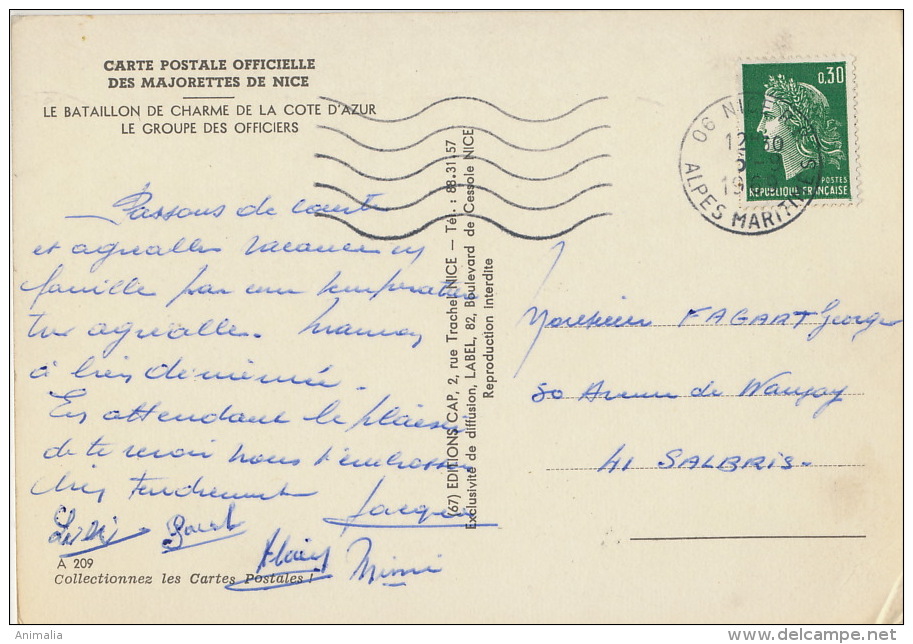 CARTE POSTALE OFFICIELLE
DES MAJORETTES DE NICE
LE BATAILLON DE CHARME DE LA COTE D'AZUR
LE GROUPE DES OFFICIERS
Passons de
et agréables vacances en
famille par une température
très agréable. Maman
a bien diminué.
En attendant le plaisir
de te revoir nous t'embrassons
bien tendrement
Jacques
Mimi
A 209
Collectionnez les Cartes Postales !
(67) EDITIONS CAP, 2, rue Trachel NICE — Tél. : 88.31-57
Exclusivité de diffusion, LABEL, 82, Boulevard de Cessole NICE
Reproduction interdite
0,30
POSTES
REPUBLIQUE FRANÇAISE
06 NICE
ALPES MARITIMES
Monsieur FAGART Georges
50 Avenue de
41 SALBRIS.
Animalia
www.delcampe.net